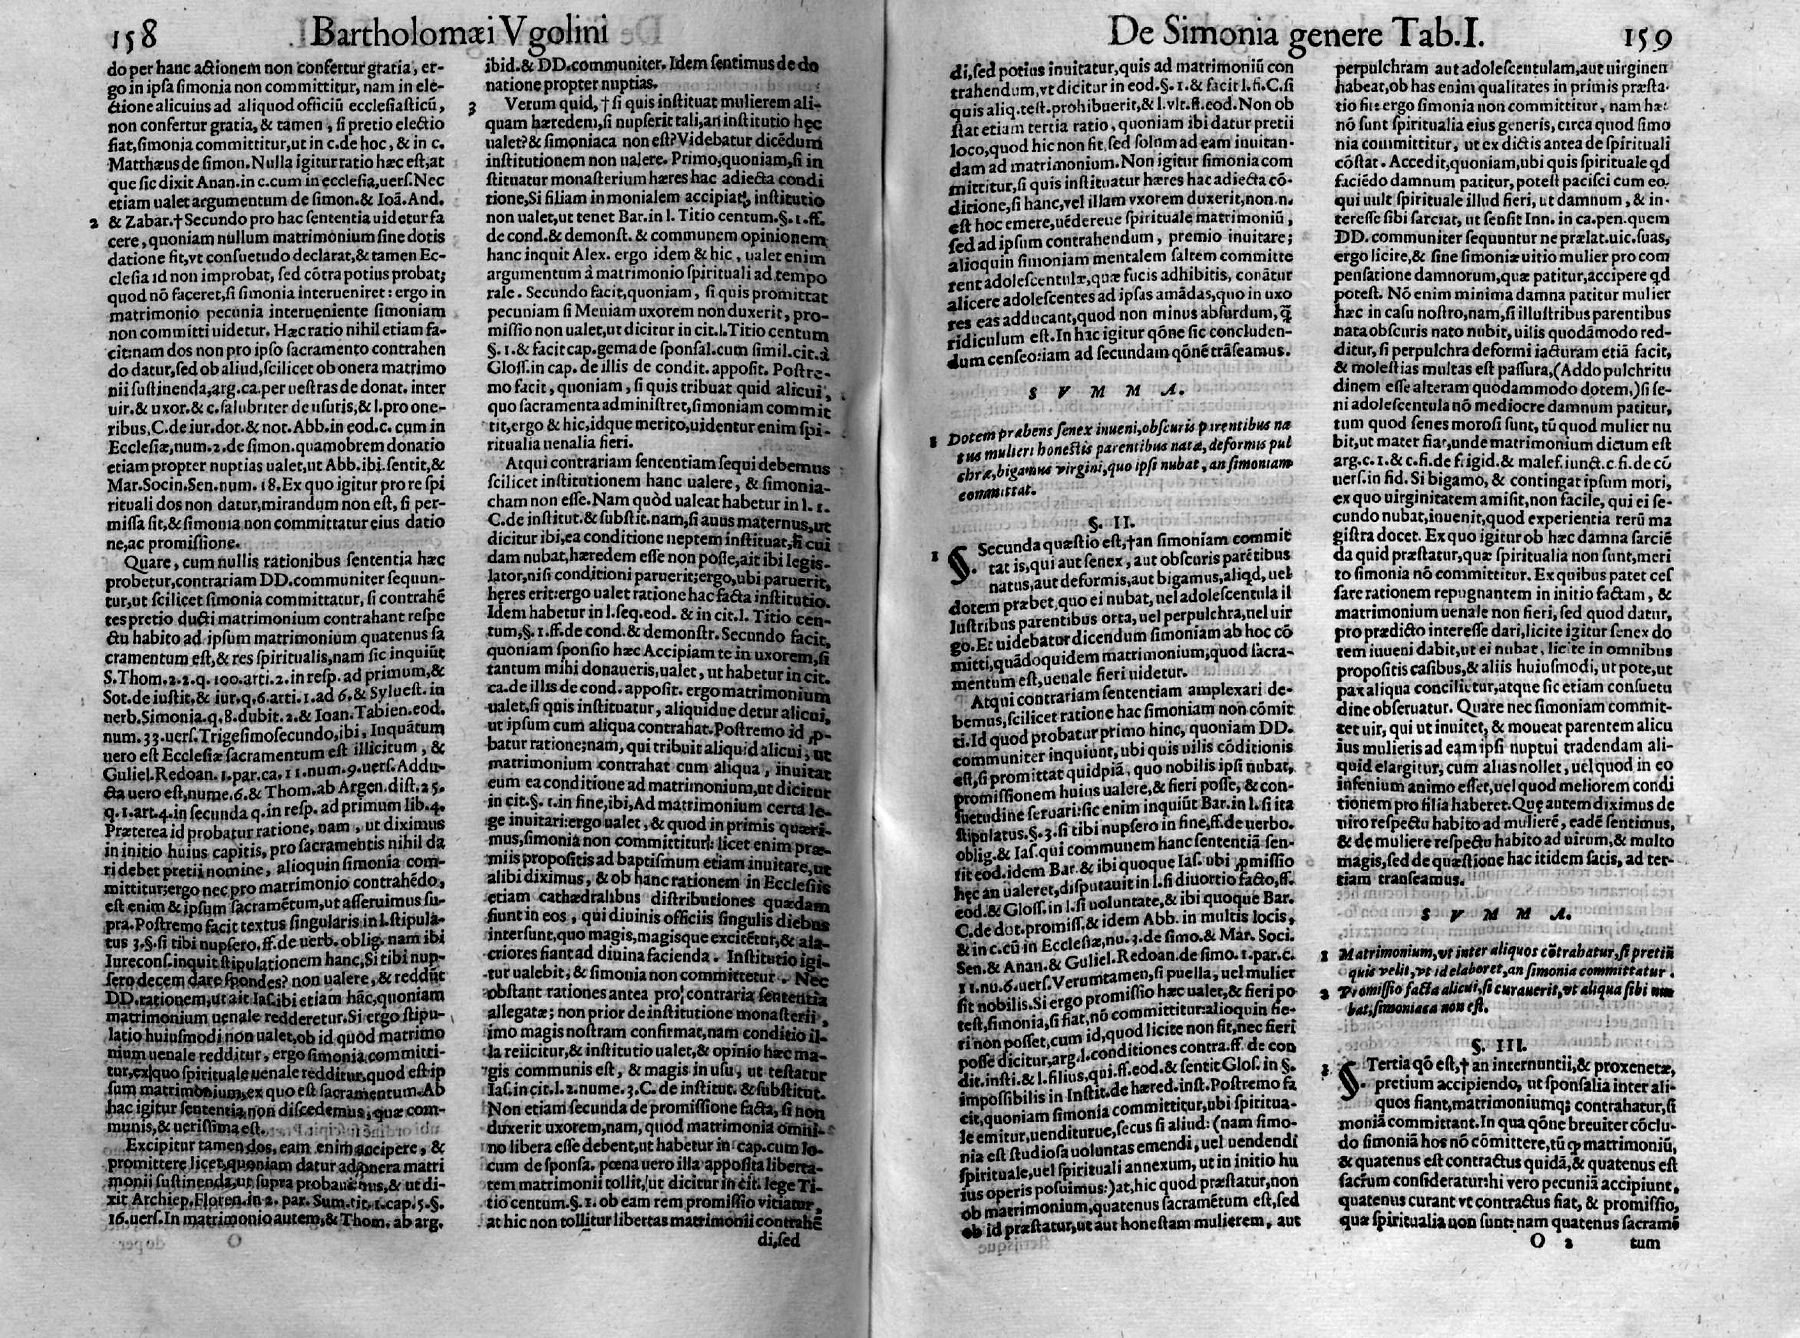 158 Bartholomæi Vgolini
do per hanc actionem non confertur gratia, er-
go in ipsa simonia non committitur, nam in ele-
ctione alicuius ad aliquod officiũ ecclesiasticũ,
non confertur gratia, & tamen, si pretio electio
fiat, simonia committitur, ut in c. de hoc, & in c.
Matthæus de simon. Nulla igitur ratio hæc est, at
que sic dixit Anan. in c. cum in ecclesia, uers. Nec
etiam ualet argumentum de simon. & Ioã. And.
2 & Zabar. † Secundo pro hac sententia uidetur fa
cere, quoniam nullum matrimonium sine dotis
datione fit, vt consuetudo declarat, & tamen Ec-
clesia id non improbat, sed cõtra potius probat;
quod nõ faceret, si simonia interueniret: ergo in
matrimonio pecunia interueniente simoniam
non committi uidetur. Hæc ratio nihil etiam fa-
cit: nam dos non pro ipso sacramento contrahen
do datur, sed ob aliud, scilicet ob onera matrimo
nii sustinenda, arg. ca. per uestras de donat. inter
uir. & uxor. & c. salubriter de usuris, & l. pro one-
ribus, C. de iur. dot. & not. Abb. in eod. c. cum in
Ecclesiæ, num. 2. de simon. quamobrem donatio
etiam propter nuptias ualet, ut Abb. ibi sentit, &
Mar. Socin. Sen. num. 18. Ex quo igitur pro re spi
rituali dos non datur, mirandum non est, si per-
missa sit, & simonia non committatur eius datio
ne, ac promissione.
Quare, cum nullis rationibus sententia hæc
probetur, contrariam DD. communiter sequun-
tur, ut scilicet simonia committatur, si contrahẽ
tes pretio ducti matrimonium contrahant respe
ctu habito ad ipsum matrimonium quatenus sa
cramentum est, & res spiritualis, nam sic inquiũt
S. Thom. 2. 2. q. 100. arti. 2. in resp. ad primum, &
Sot. de iustit. & iur. q. 6. arti. 1. ad 6. & Syluest. in
uerb. Simonia. q. 8. dubit. 2. & Ioan. Tabien. eod.
num. 33. uers. Trigesimosecundo, ibi, Inquãtum
uero est Ecclesiæ sacramentum est illicitum, &
Guliel. Redoan. 1. par. ca. 11. num. 9. uers. Addu-
cta uero est, nume. 6. & Thom. ab Argen. dist. 25.
q. 1. art. 4. in secunda q. in resp. ad primum lib. 4.
Præterea id probatur ratione, nam, ut diximus
in initio huius capitis, pro sacramentis nihil da
ri debet pretii nomine, alioquin simonia com-
mittitur; ergo nec pro matrimonio contrahẽdo,
est enim & ipsum sacramẽtum, ut asseruimus su-
pra. Postremo facit textus singularis in l. stipula-
tus 3. §. si tibi nupsero. ff. de uerb. oblig. nam ibi
Iurecons. inquit stipulationem hanc, Si tibi nup-
sero decem dare spondes? non ualere, & reddũt
DD. rationem, ut ait Ias. ibi etiam hãc, quoniam
matrimonium uenale redderetur. Si ergo stipu-
latio huiusmodi non ualet, ob id quòd matrimo
nium uenale redditur, ergo simonia committi-
tur, ex quo spirituale uenale redditur, quod est ip
sum matrimonium, ex quo est sacramentum. Ab
hac igitur sententia non discedemus, quæ com-
munis, & uerissima est.
Excipitur tamen dos, eam enim accipere, &
promittere licet, quoniam datur ad onera matri
monii sustinenda, ut supra probauimus, & ut di-
xit Archiep. Floren. in 2. par. Sum. tit. 1. cap. 5. §.
16. uers. In matrimonio autem, & Thom. ab arg.
O
ibid. & DD. communiter. Idem sentimus de do
natione propter nuptias.
3 Verum quid, † si quis instituat mulierem ali-
quam hæredem, si nupserit tali, an institutio hęc
ualet? & simoniaca non est? Videbatur dicẽdum
institutionem non ualere. Primo, quoniam, si in
stituatur monasterium hæres hac adiecta condi
tione, Si filiam in monialem accipiat, institutio
non ualet, ut tenet Bar. in l. Titio centum. §. 1. ff.
de cond. & demonst. & communem opinionem
hanc inquit Alex. ergo idem & hic, ualet enim
argumentum à matrimonio spirituali ad tempo
rale. Secundo facit, quoniam, si quis promittat
pecuniam si Meniam uxorem non duxerit, pro-
missio non ualet, ut dicitur in cit. l. Titio centum
§. 1. & facit cap. gema de sponsal. cum simil. cit. à
Gloss. in cap. de illis de condit. apposit. Postre-
mo facit, quoniam, si quis tribuat quid alicui,
quo sacramenta administret, simoniam commit
tit, ergo & hic, idque merito, uidentur enim spi-
ritualia uenalia fieri.
Atqui contrariam sententiam sequi debemus
scilicet institutionem hanc ualere, & simonia-
cham non esse. Nam quòd ualeat habetur in l. 1.
C. de institut. & substit. nam, si auus maternus, ut
dicitur ibi, ea conditione neptem instituat, si cui
dam nubat, hæredem esse non posse, ait ibi legis-
lator, nisi conditioni paruerit; ergo, ubi paruerit,
hęres erit: ergo ualet ratione hac facta institutio.
Idem habetur in l. seq. eod. & in cit. l. Titio cen-
tum, §. 1. ff. de cond. & demonstr. Secundo facit,
quoniam sponsio hæc Accipiam te in uxorem, si
tantum mihi donaueris, ualet, ut habetur in cit.
ca. de illis de cond. apposit. ergo matrimonium
ualet, si quis instituatur, aliquidue detur alicui,
ut ipsum cum aliqua contrahat. Postremo id ꝓ-
batur ratione; nam, qui tribuit aliquid alicui, ut
matrimonium contrahat cum aliqua, inuitat
eum ea conditione ad matrimonium, ut dicitur
in cit. §. 1. in fine, ibi, Ad matrimonium certa le-
ge inuitari: ergo ualet, & quod in primis quæri-
mus, simonia non committitur: licet enim præ-
miis propositis ad baptismum etiam inuitare, ut
alibi diximus, & ob hanc rationem in Ecclesiis
etiam cathædralibus distributiones quædam
fiunt in eos, qui diuinis officiis singulis diebus
intersunt, quo magis, magisque excitẽtur, & ala-
criores fiant ad diuina facienda. Institutio igi-
tur ualebit, & simonia non committetur. Nec
obstant rationes antea pro contraria sententia
allegatæ; non prior de institutione monasterii,
imo magis nostram confirmat, nam conditio il-
la reiicitur, & institutio ualet, & opinio hæc ma-
gis communis est, & magis in usu, ut testatur
Ias. in cit. l. 2. nume. 3. C. de institut. & substitut.
Non etiam secunda de promissione facta, si non
duxerit uxorem, nam, quod matrimonia omni-
no libera esse debent, ut habetur in cap. cum lo-
cum de sponsa. pœna uero illa apposita liberta-
tem matrimonii tollit, ut dicitur in cit. lege Ti-
tio centum. §. 1. ob eam rem promissio vitiatur,
at hic non tollitur libertas matrimonii contrahẽ
di, sed
De Simonia genere Tab. I. 159
di, sed potius inuitatur, quis ad matrimoniũ con
trahendum, vt dicitur in eod. §. 1. & facit l. fi. C. si
quis aliq. test. prohibuerit, & l. vlt. ff. eod. Non ob
stat etiam tertia ratio, quoniam ibi datur pretii
loco, quod hic non fit, sed solum ad eam inuitan-
dam ad matrimonium. Non igitur simonia com
mittitur, si quis instituatur hæres hac adiecta cõ-
ditione, si hanc, vel illam vxorem duxerit, non. n.
est hoc emere, uẽdereue spirituale matrimoniũ,
sed ad ipsum contrahendum, premio inuitare;
alioquin simoniam mentalem saltem committe
rent adolescentulæ, quæ fucis adhibitis, conãtur
alicere adolescentes ad ipsas amãdas, quo in uxo
res eas adducant, quod non minus absurdum, q̃
ridiculum est. In hac igitur qõne sic concluden-
dum censeo: iam ad secundam qõnẽ trãseamus.
S V M M A.
1 Dotem præbens senex iuueni, obscuris parentibus na
tus mulieri honestis parentibus natæ, deformis pul
chræ, bigamus virgini, quo ipsi nubat, an simoniam
committat.
§. II.
1 §. Secunda quæstio est, † an simoniam commit
tat is, qui aut senex, aut obscuris parẽtibus
natus, aut deformis, aut bigamus, aliqd, uel
dotem præbet, quo ei nubat, uel adolescentula il
lustribus parentibus orta, uel perpulchra, uel uir
go. Et uidebatur dicendum simoniam ab hoc cõ
mitti, quãdoquidem matrimonium, quod sacra-
mentum est, uenale fieri uidetur.
Atqui contrariam sententiam amplexari de-
bemus, scilicet ratione hac simoniam non cõmit
ti. Id quod probatur primo hinc, quoniam DD.
communiter inquiunt, ubi quis uilis cõditionis
est, si promittat quidpiã, quo nobilis ipsi nubat,
promissionem huius ualere, & fieri posse, & con-
suetudine seruari: sic enim inquiũt Bar. in l. si ita
stipulatus. §. 3. si tibi nupsero in fine, ff. de uerbo.
oblig. & Ias. qui communem hanc sententiã sen-
sit eod. idem Bar. & ibi quoque Ias. ubi ꝓmissio
hęc an ualeret, disputauit in l. si diuortio facto, ff.
eod. & Gloss. in l. si uoluntate, & ibi quoque Bar.
C. de dot. promiss. & idem Abb. in multis locis,
& in c. cũ in Ecclesiæ, nu. 3. de simo. & Mar. Soci.
Sen. & Anan. & Guliel. Redoan. de simo. 1. par. c.
11. nu. 6. uers. Verumtamen, si puella, uel mulier
sit nobilis. Si ergo promissio hæc ualet, & fieri po
test, simonia, si fiat, nõ committitur: alioquin fie-
ri non posset, cum id, quod licite non fit, nec fieri
posse dicitur, arg. l. conditiones contra. ff. de con
dit. insti. & l. filius, qui. ff. eod. & sentit Glos. in §.
impossibilis in Instit. de hæred. inst. Postremo fa
cit, quoniam simonia committitur, ubi spiritua-
le emitur, uenditurue, secus si aliud: (nam simo-
nia est studiosa uoluntas emendi, uel uendendi
spirituale, uel spirituali annexum, ut in initio hu
ius operis posuimus:) at, hic quod præstatur, non
ob matrimonium, quatenus sacramẽtum est, sed
ob id præstatur, ut aut honestam mulierem, aut
perpulchram aut adolescentulam, aut uirginem
habeat, ob has enim qualitates in primis præsta-
tio fit: ergo simonia non committitur, nam hæ
nõ sunt spiritualia eius generis, circa quod simo
nia committitur, ut ex dictis antea de spirituali
cõstat. Accedit, quoniam, ubi quis spirituale qd
faciẽdo damnum patitur, potest pacisci cum eo,
qui uult spirituale illud fieri, ut damnum, & in-
teresse sibi sarciat, ut sensit Inn. in ca. pen. quem
DD. communiter sequuntur ne prælat. uic. suas,
ergo licite, & sine simoniæ uitio mulier pro com
pensatione damnorum, quæ patitur, accipere qd
potest. Nõ enim minima damna patitur mulier
hæc in casu nostro, nam, si illustribus parentibus
nata obscuris nato nubit, uilis quodãmodo red-
ditur, si perpulchra deformi iacturam etiã facit,
& molestias multas est passura, (Addo pulchritu
dinem esse alteram quodammodo dotem,) si se-
ni adolescentula nõ mediocre damnum patitur,
tum quod senes morosi sunt, tũ quod mulier nu
bit, ut mater fiat, unde matrimonium dictum est
arg. c. 1. & c. fi. de frigid. & malef. iunct. c. fi. de cõ
uers. in fid. Si bigamo, & contingat ipsum mori,
ex quo uirginitatem amisit, non facile, qui ei se-
cundo nubat, inuenit, quod experientia rerũ ma
gistra docet. Ex quo igitur ob hæc damna sarciẽ
da quid præstatur, quæ spiritualia non sunt, meri
to simonia nõ committitur. Ex quibus patet ces
sare rationem repugnantem in initio factam, &
matrimonium uenale non fieri, sed quod datur,
pro prædicto interesse dari, licite igitur senex do
tem iuueni dabit, ut ei nubat, licite in omnibus
propositis casibus, & aliis huiusmodi, ut pote, ut
pax aliqua concilietur, atque sic etiam consuetu
dine obseruatur. Quare nec simoniam commit-
tet uir, qui ut inuitet, & moueat parentem alicu
ius mulieris ad eam ipsi nuptui tradendam ali-
quid elargitur, cum alias nollet, uel quod in eo
infensum animo esset, uel quod meliorem condi
tionem pro filia haberet. Quæ autem diximus de
uiro respectu habito ad mulierẽ, eadẽ sentimus,
& de muliere respectu habito ad uirum, & multo
magis, sed de quæstione hac itidem satis, ad ter-
tiam transeamus.
S V M M A.
1 Matrimonium, vt inter aliquos cõtrahatur, si pretiũ
quis velit, vt id elaboret, an simonia committatur.
2 Promissio facta alicui, si curauerit, vt aliqua sibi nu
bat, simoniaca non est.
§. III.
1 §. Tertia qõ est, † an internuntii, & proxenetæ,
pretium accipiendo, ut sponsalia inter ali-
quos fiant, matrimoniumq; contrahatur, si
moniã committant. In qua qõne breuiter cõclu-
do simoniã hos nõ cõmittere, tũ ꝙ matrimoniũ,
& quatenus est contractus quidã, & quatenus est
sacrum consideratur: hi vero pecuniã accipiunt,
quatenus curant vt contractus fiat, & promissio,
quæ spiritualia non sunt: nam quatenus sacramẽ
O 2 tum